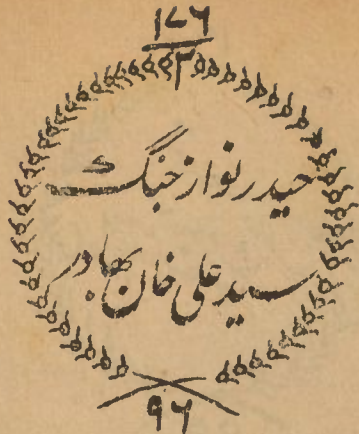 ۱۷۶
۳
حیدر نواز جنگ
سید علی خان بهادر
۹۶